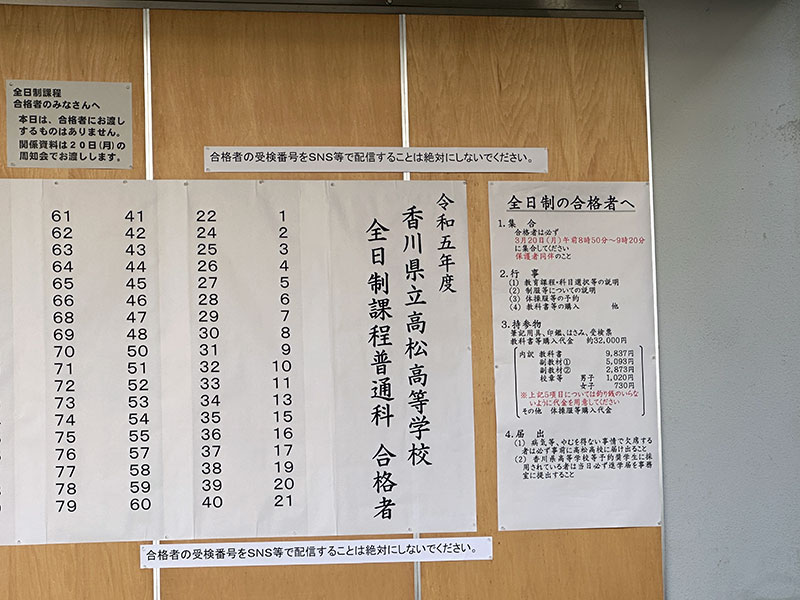 全日制課程
合格者のみなさんへ
本日は、合格者にお渡し
するものはありません。
関係資料は20日(月)の
周知会でお渡しします。
合格者の受検番号をSNS等で配信することは絶対にしないでください。
令和五年度
香川県立高松高等学校
全日制課程普通科 合格者
1
2
3
4
5
6
7
8
9
10
11
13
15
16
17
19
20
21
22
24
25
26
27
28
29
30
31
32
33
34
35
36
37
38
39
40
41
42
43
44
45
46
47
48
50
51
52
53
54
55
57
58
59
60
61
62
63
64
65
66
68
69
70
71
72
73
74
75
76
77
78
79
合格者の受検番号をSNS等で配信することは絶対にしないでください。
全日制の合格者へ
1.集 合
合格者は必ず
3月20日(月)午前8時50分～9時20分
に集合してください
保護者同伴のこと
2.行 事
(1) 教育課程・科目選択等の説明
(2) 制服等についての説明
(3) 体操服等の予約
(4) 教科書等の購入 他
3.持参物
筆記用具、印鑑、はさみ、受検票
教科書等購入代金 約32,000円
内訳 教科書 9,837円
副教材① 5,093円
副教材② 2,873円
校章等 男子 1,020円
女子 730円
※上記5項目については釣り銭のいらな
いように代金を用意してください
その他 体操服等購入代金
4.届 出
(1) 病気等、やむを得ない事情で欠席する
者は必ず事前に高松高校に届け出ること
(2) 香川県高等学校等予約奨学生に採
用されている者は当日必ず進学届を事務
室に提出すること